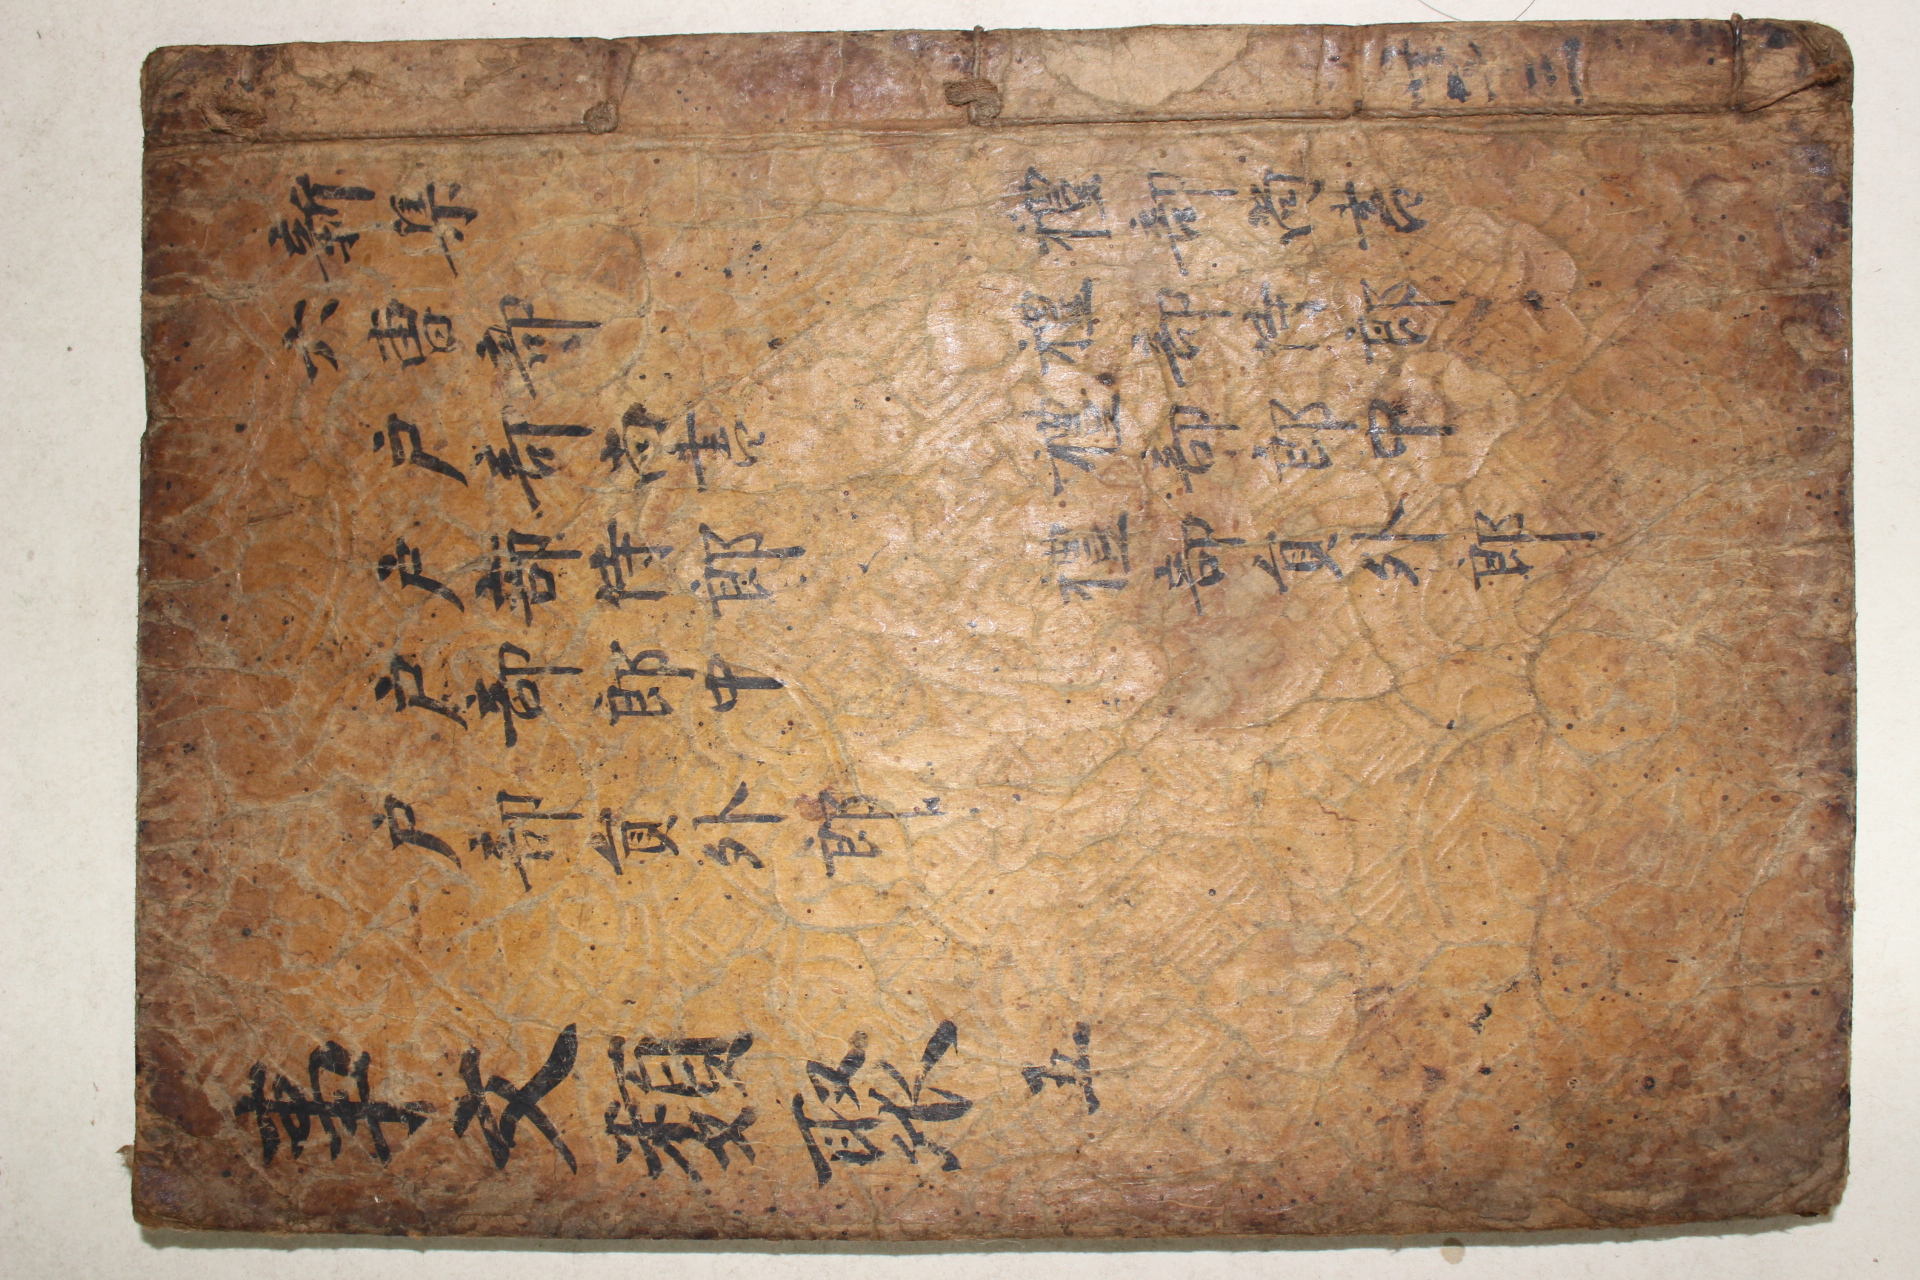 新集
六曺部
戶部尚書
戶部侍郎
戶部郎中
戶部員外郎
禮部尚書
禮部侍郎
禮部郎中
禮部員外郎
事文類聚 五